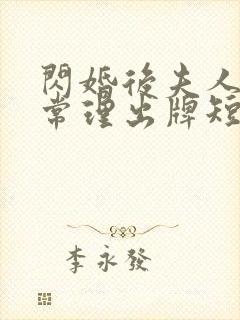 閃婚後夫人
常理出牌短
李永發